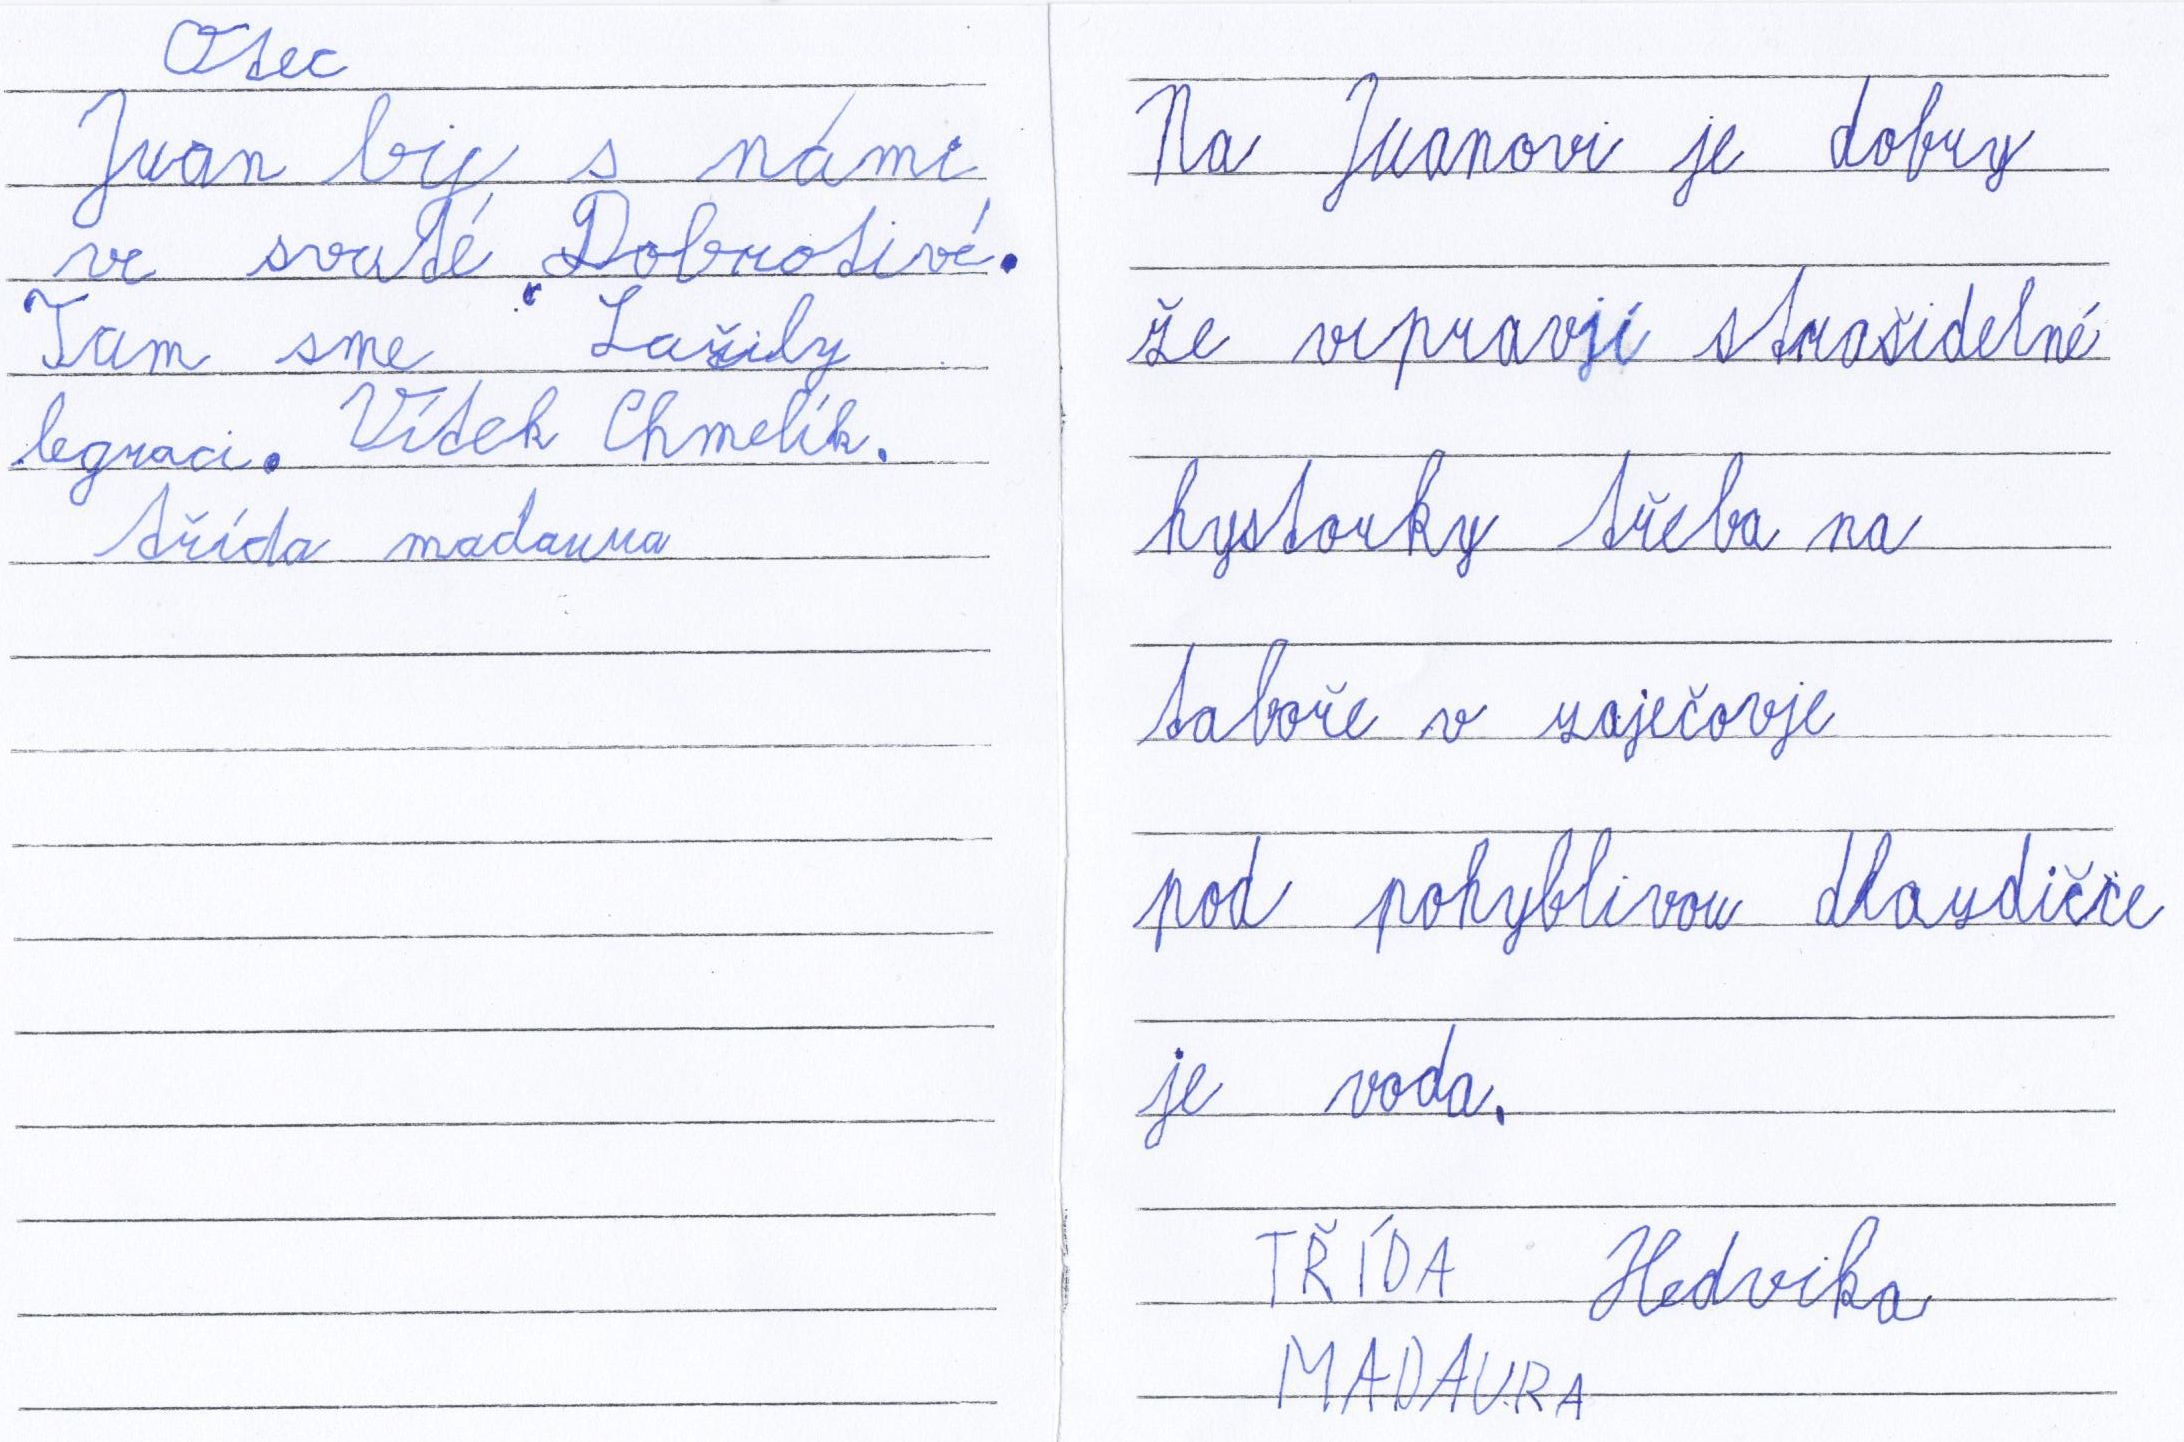 Otec
Juan bij s námi
ve svaté Dobrotivé.
Tam sme Zažily
legraci. Vítek Chmelík.
třída madaura
Na Juanovi je dobry
že vipravji strašidelné
hystorky třeba na
taboře v zaječovje
pod pohyblivou dlazdičce
je voda.
TŘÍDA Hedvika
MADAURA